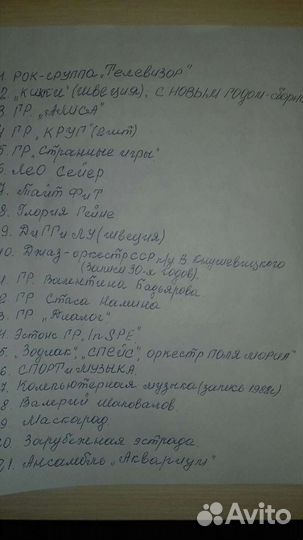 1. РОК-ГРУППА "ТЕЛЕВИЗОР"
2. (ШВЕЦИЯ), С НОВЫМ ГОДОМ-сборн
3. ГР. "АЛИСА"
4 ГР. "КРУГ" (вит)
5 ГР. "Странные игры"
6. ЛЕО СЕЙЕР
7. Тайт Фит
8. Глория Гейне
9. Ди Гги ЛУ (Швеция)
10. Джаз-оркестр СССР п/у В. Кнушевицкого
(записи 30-х годов)
1. ГР. Валентина Бадьярова
2 ГР Стаса Намина
3 ГР. "Диалог"
4. Эстонс. ГР. "In SPE"
5. "Зодиак", "СПЕЙС", оркестр ПОЛЯ МОРИА"
6. СПОРТ и МУЗЫКА
7. Компьютерная музыка (запись 1982г)
8. Валерий Шаповалов
9 Маскарад
20. Зарубежная эстрада
21. Ансамбль "Аквариум"
Avito